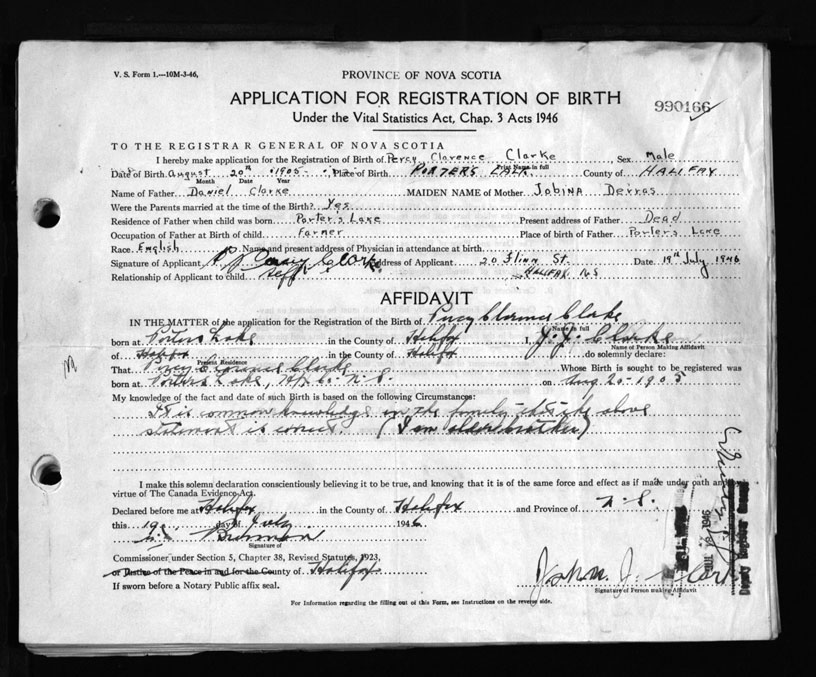 V. S. Form 1.—10M-3-46,
PROVINCE OF NOVA SCOTIA
APPLICATION FOR REGISTRATION OF BIRTH
990166
Under the Vital Statistics Act, Chap. 3 Acts 1946
TO THE REGISTRAR GENERAL OF NOVA SCOTIA
I hereby make application for the Registration of Birth of Percy Clarence Clarke Sex Male
Print Name in full
Date of Birth August 20th 1905 Place of Birth PORTERS LAKE County of HALIFAX
Month Date Year
Name of Father Daniel Clarke MAIDEN NAME of Mother Jobina
Were the Parents married at the time of Birth? Yes
Residence of Father when child was born Porter's Lake Present address of Father Dead
Occupation of Father at Birth of child Farmer Place of birth of Father Porters Lake
Race English Name and present address of Physician in attendance at birth
Signature of Applicant Percy C Clarke Address of Applicant 20 Flinn St. Date 19th July 1946
Relationship of Applicant to child Self HALIFAX NS
AFFIDAVIT
IN THE MATTER of the application for the Registration of the Birth of Percy Clarence Clarke
Name in full
born at Porters Lake in the County of Halifax I, J. J. Clarke
Name of Person Making Affidavit
of Halifax in the County of Halifax do solemnly declare:
Present Residence
That Percy Clarence Clarke Whose Birth is sought to be registered was
born at Porters Lake, Hfx Co. N.S. on Aug 20-1905
My knowledge of the fact and date of such Birth is based on the following Circumstances:
It is common knowledge in the family that the above
statement is correct. (I am older brother)
I make this solemn declaration conscientiously believing it to be true, and knowing that it is of the same force and effect as if made under oath and
virtue of The Canada Evidence Act.
Declared before me at Halifax in the County of Halifax and Province of N.S.
this 19 day of July 1946
Signature of
Commissioner under Section 5, Chapter 38, Revised Statutes, 1923,
or Justice of the Peace in and for the County of Halifax
If sworn before a Notary Public affix seal.
John J. Clarke
Signature of Person making Affidavit
For Information regarding the filling out of this Form, see Instructions on the reverse side.
1946